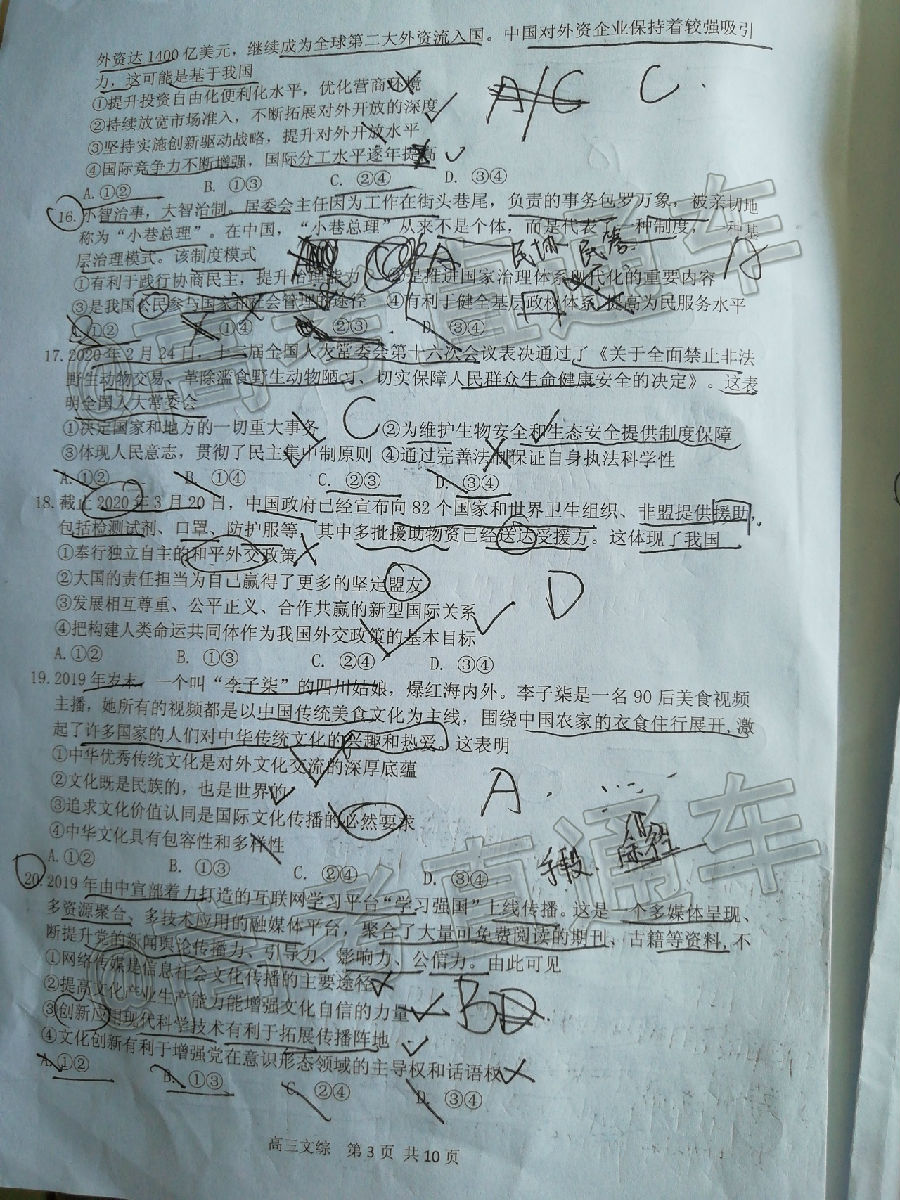 外资达1400亿美元，继续成为全球第二大外资流入国。中国对外资企业保持着较强吸引
力，这可能是基于我国
①提升投资自由化便利化水平，优化营商环境
②持续放宽市场准入，不断拓展对外开放的深度
③坚持实施创新驱动战略，提升对外开放水平
④国际竞争力不断增强，国际分工水平逐年提高
A/C C.
A.①② B.①③ C.②④ D.③④
16.小智治事，大智治制。居委会主任因为工作在街头巷尾，负责的事务包罗万象，被亲切地
称为“小巷总理”。在中国，“小巷总理”从来不是个体，而是代表了一种制度，一种基
层治理模式。该制度模式
A 民主 A
①有利于践行协商民主，提升治理能力 ②是推进国家治理体系现代化的重要内容
③是我国公民参与国家社会管理的途径 ④有利于健全基层政权体系，提高为民服务水平
A.①② B.①④ C.②③ D.③④
17.2020年2月24日，十三届全国人大常委会第十六次会议表决通过了《关于全面禁止非法
野生动物交易、革除滥食野生动物陋习、切实保障人民群众生命健康安全的决定》。这表
明全国人大常委会
C
①决定国家和地方的一切重大事务 ②为维护生物安全和生态安全提供制度保障
③体现人民意志，贯彻了民主集中制原则 ④通过完善法制保证自身执法科学性
A.①② B.①④ C.②③ D.③④
18.截止2020年3月20日，中国政府已经宣布向82个国家和世界卫生组织、非盟提供援助，
包括检测试剂、口罩、防护服等，其中多批援助物资已经送达受援方。这体现了我国
①奉行独立自主的和平外交政策
②大国的责任担当为自己赢得了更多的坚定盟友
D
③发展相互尊重、公平正义、合作共赢的新型国际关系
④把构建人类命运共同体作为我国外交政策的基本目标
A.①② B.①③ C.②④ D.③④
19.2019年岁末，一个叫“李子柒”的四川姑娘，爆红海内外。李子柒是一名90后美食视频
主播，她所有的视频都是以中国传统美食文化为主线，围绕中国农家的衣食住行展开，激
起了许多国家的人们对中华传统文化的兴趣和热爱。这表明
①中华优秀传统文化是对外文化交流的深厚底蕴
②文化既是民族的，也是世界的
A.
③追求文化价值认同是国际文化传播的必然要求
④中华文化具有包容性和多样性
A.①② B.①③ C.②④ D.③④
手段：途径
20.2019年由中宣部着力打造的互联网学习平台“学习强国”上线传播。这是一个多媒体呈现、
多资源聚合、多技术应用的融媒体平台，聚合了大量可免费阅读的期刊、古籍等资料，不
断提升党的新闻舆论传播力、引导力、影响力、公信力。由此可见
①网络传媒是信息社会文化传播的主要途径
②提高文化产业生产能力能增强文化自信的力量
B D
③创新应用现代科学技术有利于拓展传播阵地
④文化创新有利于增强党在意识形态领域的主导权和话语权
A.①② B.①③ C.②④ D.③④
高三文综 第3页 共10页
高考直通车
高考直通车